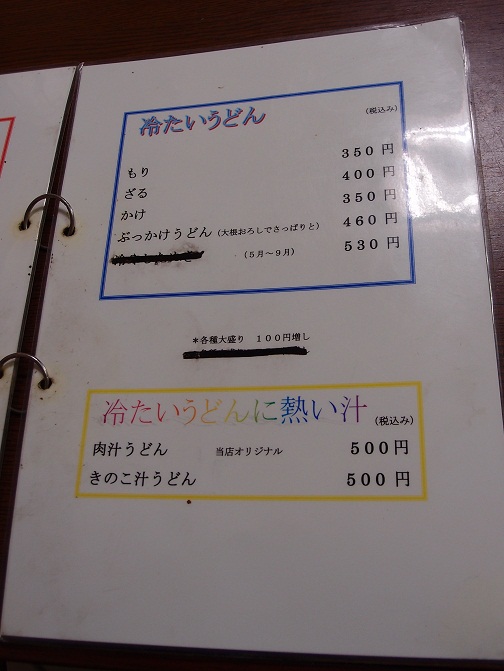 冷たいうどん (税込み)
もり 350円
ざる 400円
かけ 350円
ぶっかけうどん (大根おろしでさっぱりと) 460円
(5月～9月) 530円
*各種大盛り 100円増し
冷たいうどんに熱い汁 (税込み)
肉汁うどん 当店オリジナル 500円
きのこ汁うどん 500円